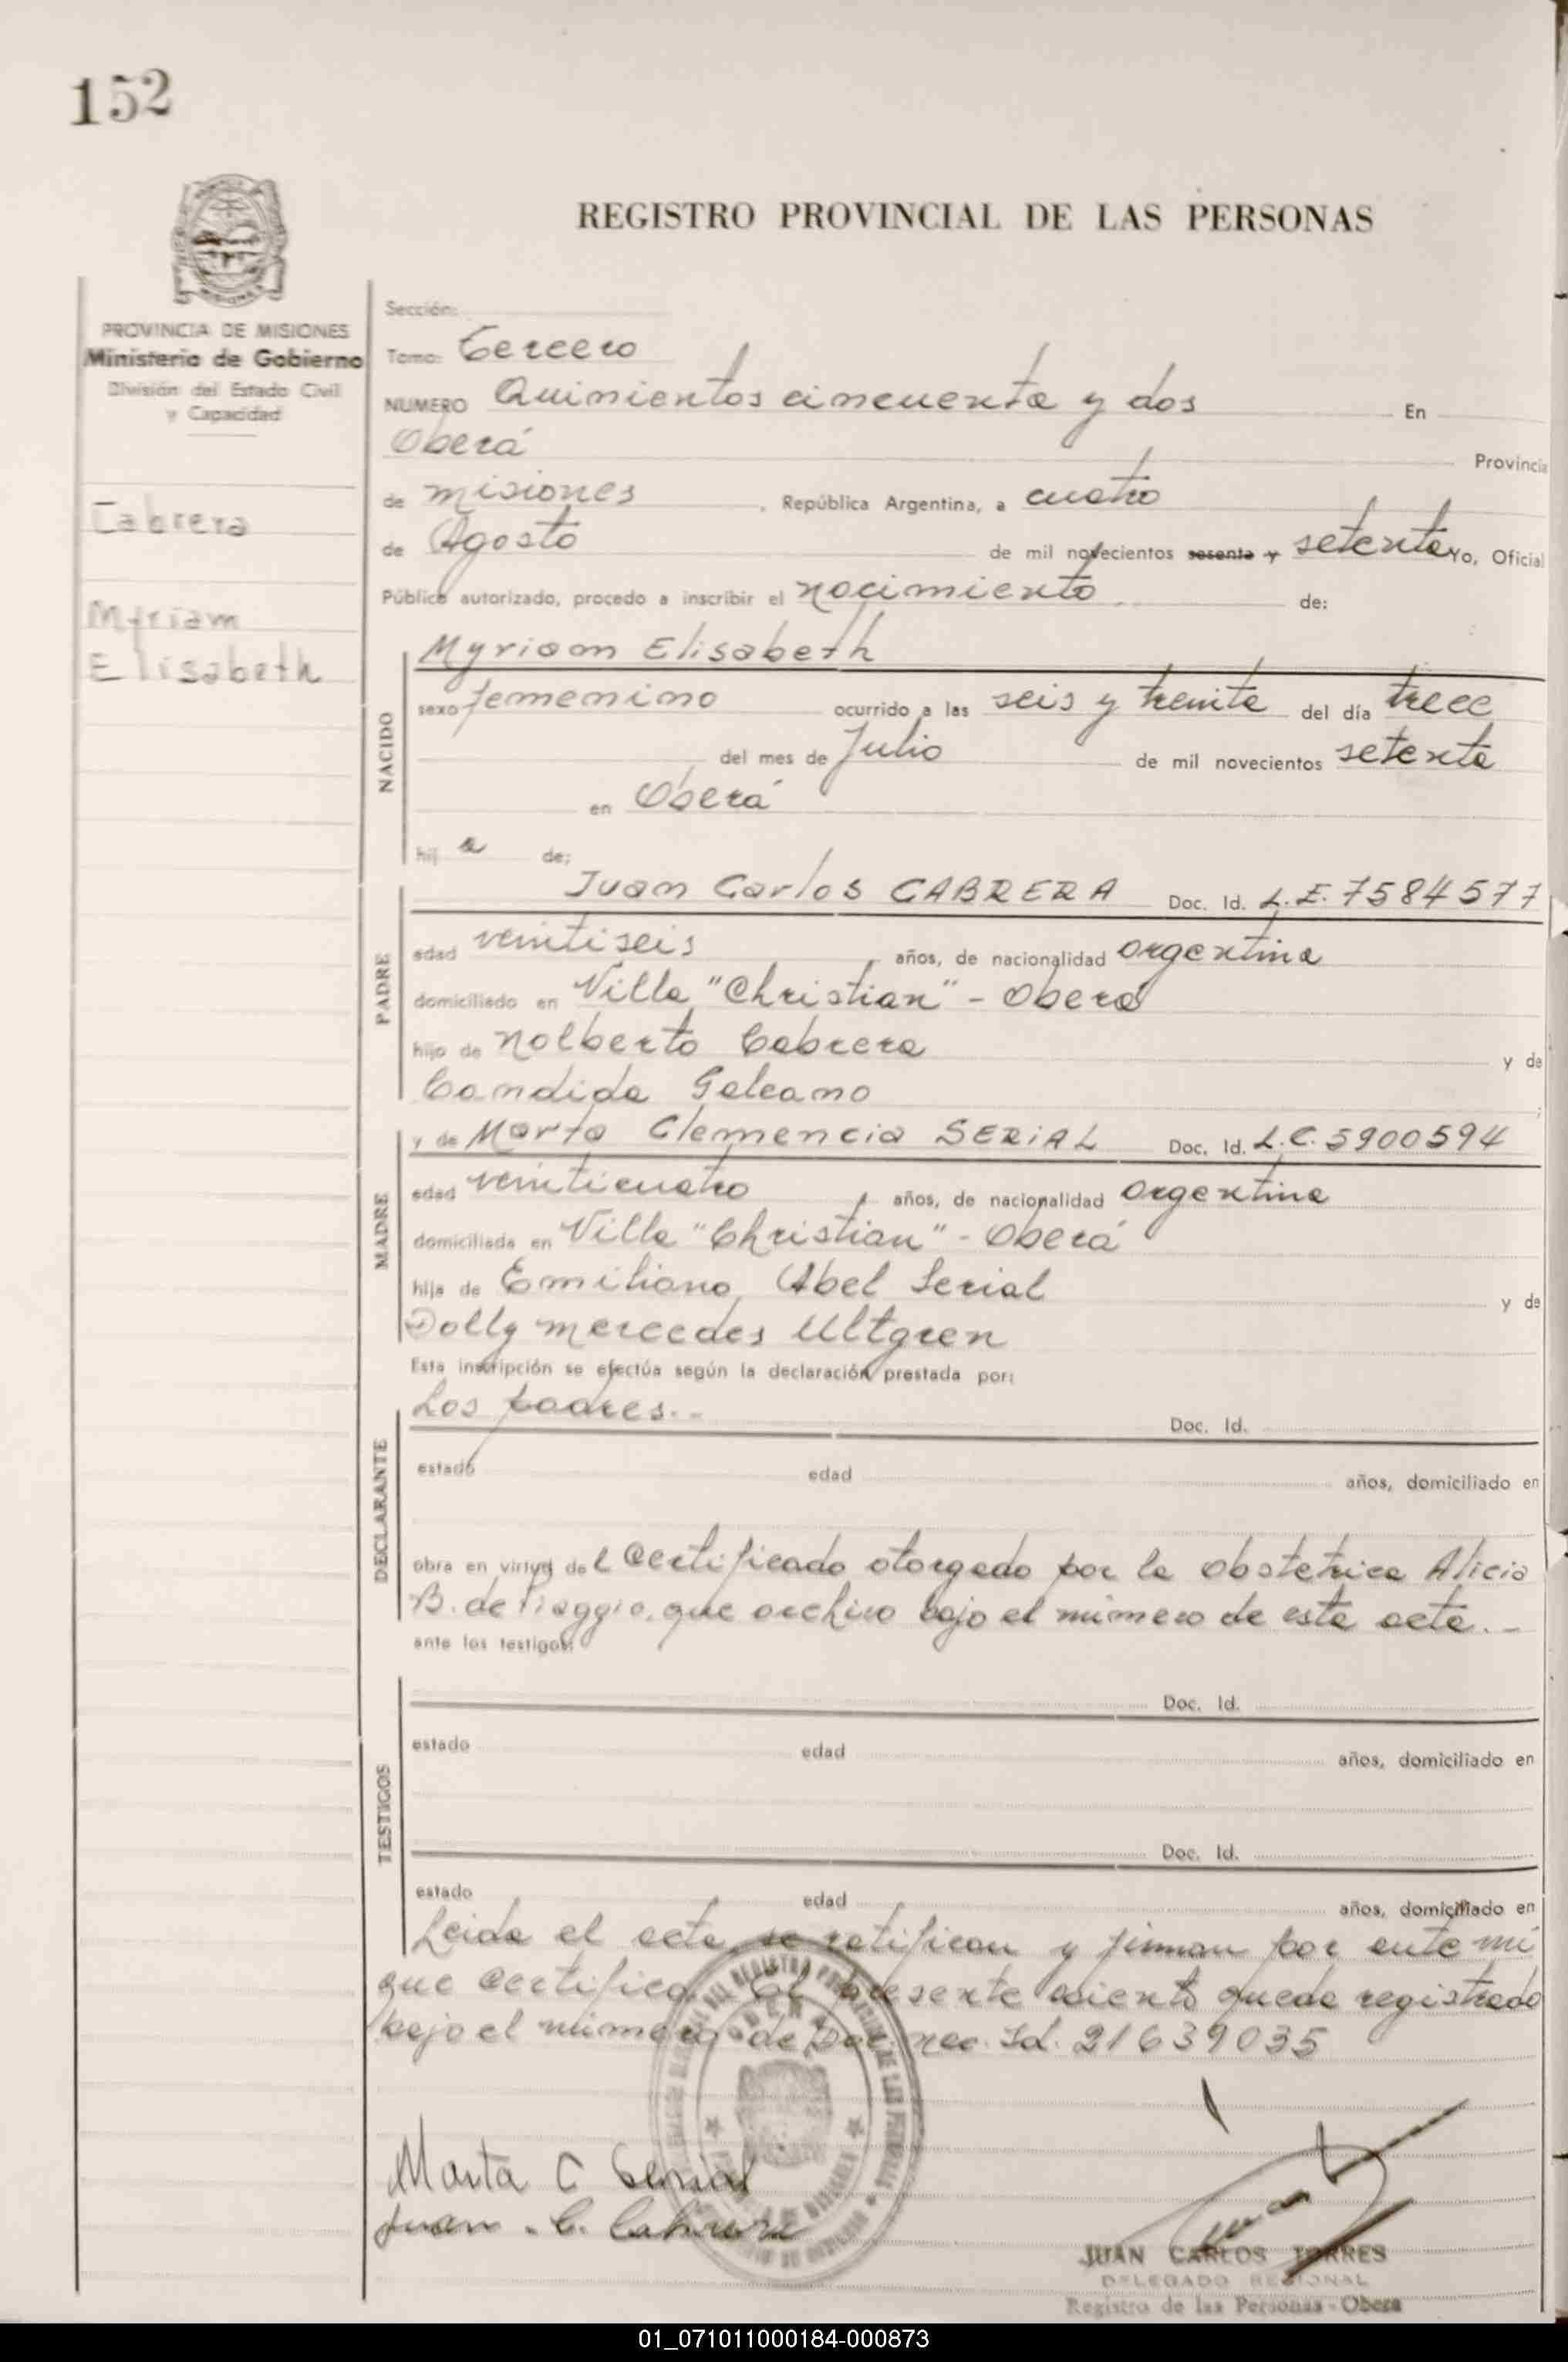 152
REGISTRO PROVINCIAL DE LAS PERSONAS
PROVINCIA DE MISIONES
Ministerio de Gobierno
División del Estado Civil
y Capacidad
Cabrera
Myriam
Elisabeth
Sección:
Tomo: Tercero
NUMERO Quinientos cincuenta y dos En
Oberá Provincia
de misiones, República Argentina, a cuatro
de Agosto de mil novecientos sesenta y setenta yo, Oficial
Público autorizado, procedo a inscribir el nacimiento de:
NACIDO
Myriam Elisabeth
sexo femenino ocurrido a las seis y treinta del día trece
del mes de Julio de mil novecientos setenta
en Oberá
hij a de:
PADRE
Juan Carlos CABRERA Doc. Id. L.E. 7584577
edad veintiseis años, de nacionalidad argentina
domiciliado en Villa "Christian" - Oberá
hijo de Nolberto Cabrera y de
Candida Galeano
MADRE
y de Marta Clemencia SERIAL Doc. Id. L.C. 5900594
edad veinticuatro años, de nacionalidad argentina
domiciliada en Villa "Christian" - Oberá
hija de Emiliano Abel Serial y de
Dolly mercedes Ultgren
Esta inscripción se efectúa según la declaración prestada por:
DECLARANTE
Los padres.- Doc. Id.
estado edad años, domiciliado en
obra en virtud de l certificado otorgado por la obstetrica Alicia
B. de Piaggio, que archivo bajo el número de esta acta.-
ante los testigos:
TESTIGOS
Doc. Id.
estado edad años, domiciliado en
Doc. Id.
estado edad años, domiciliado en
Leida el acta, se ratifican y firman por ante mi
que certifico. El presente asiento queda registrado
bajo el número de Doc. nac. Id. 21639035
Marta C Serial
Juan . C. Cabrera
JUAN CARLOS TORRES
DELEGADO REGIONAL
Registro de las Personas - Oberá
01_071011000184-000873